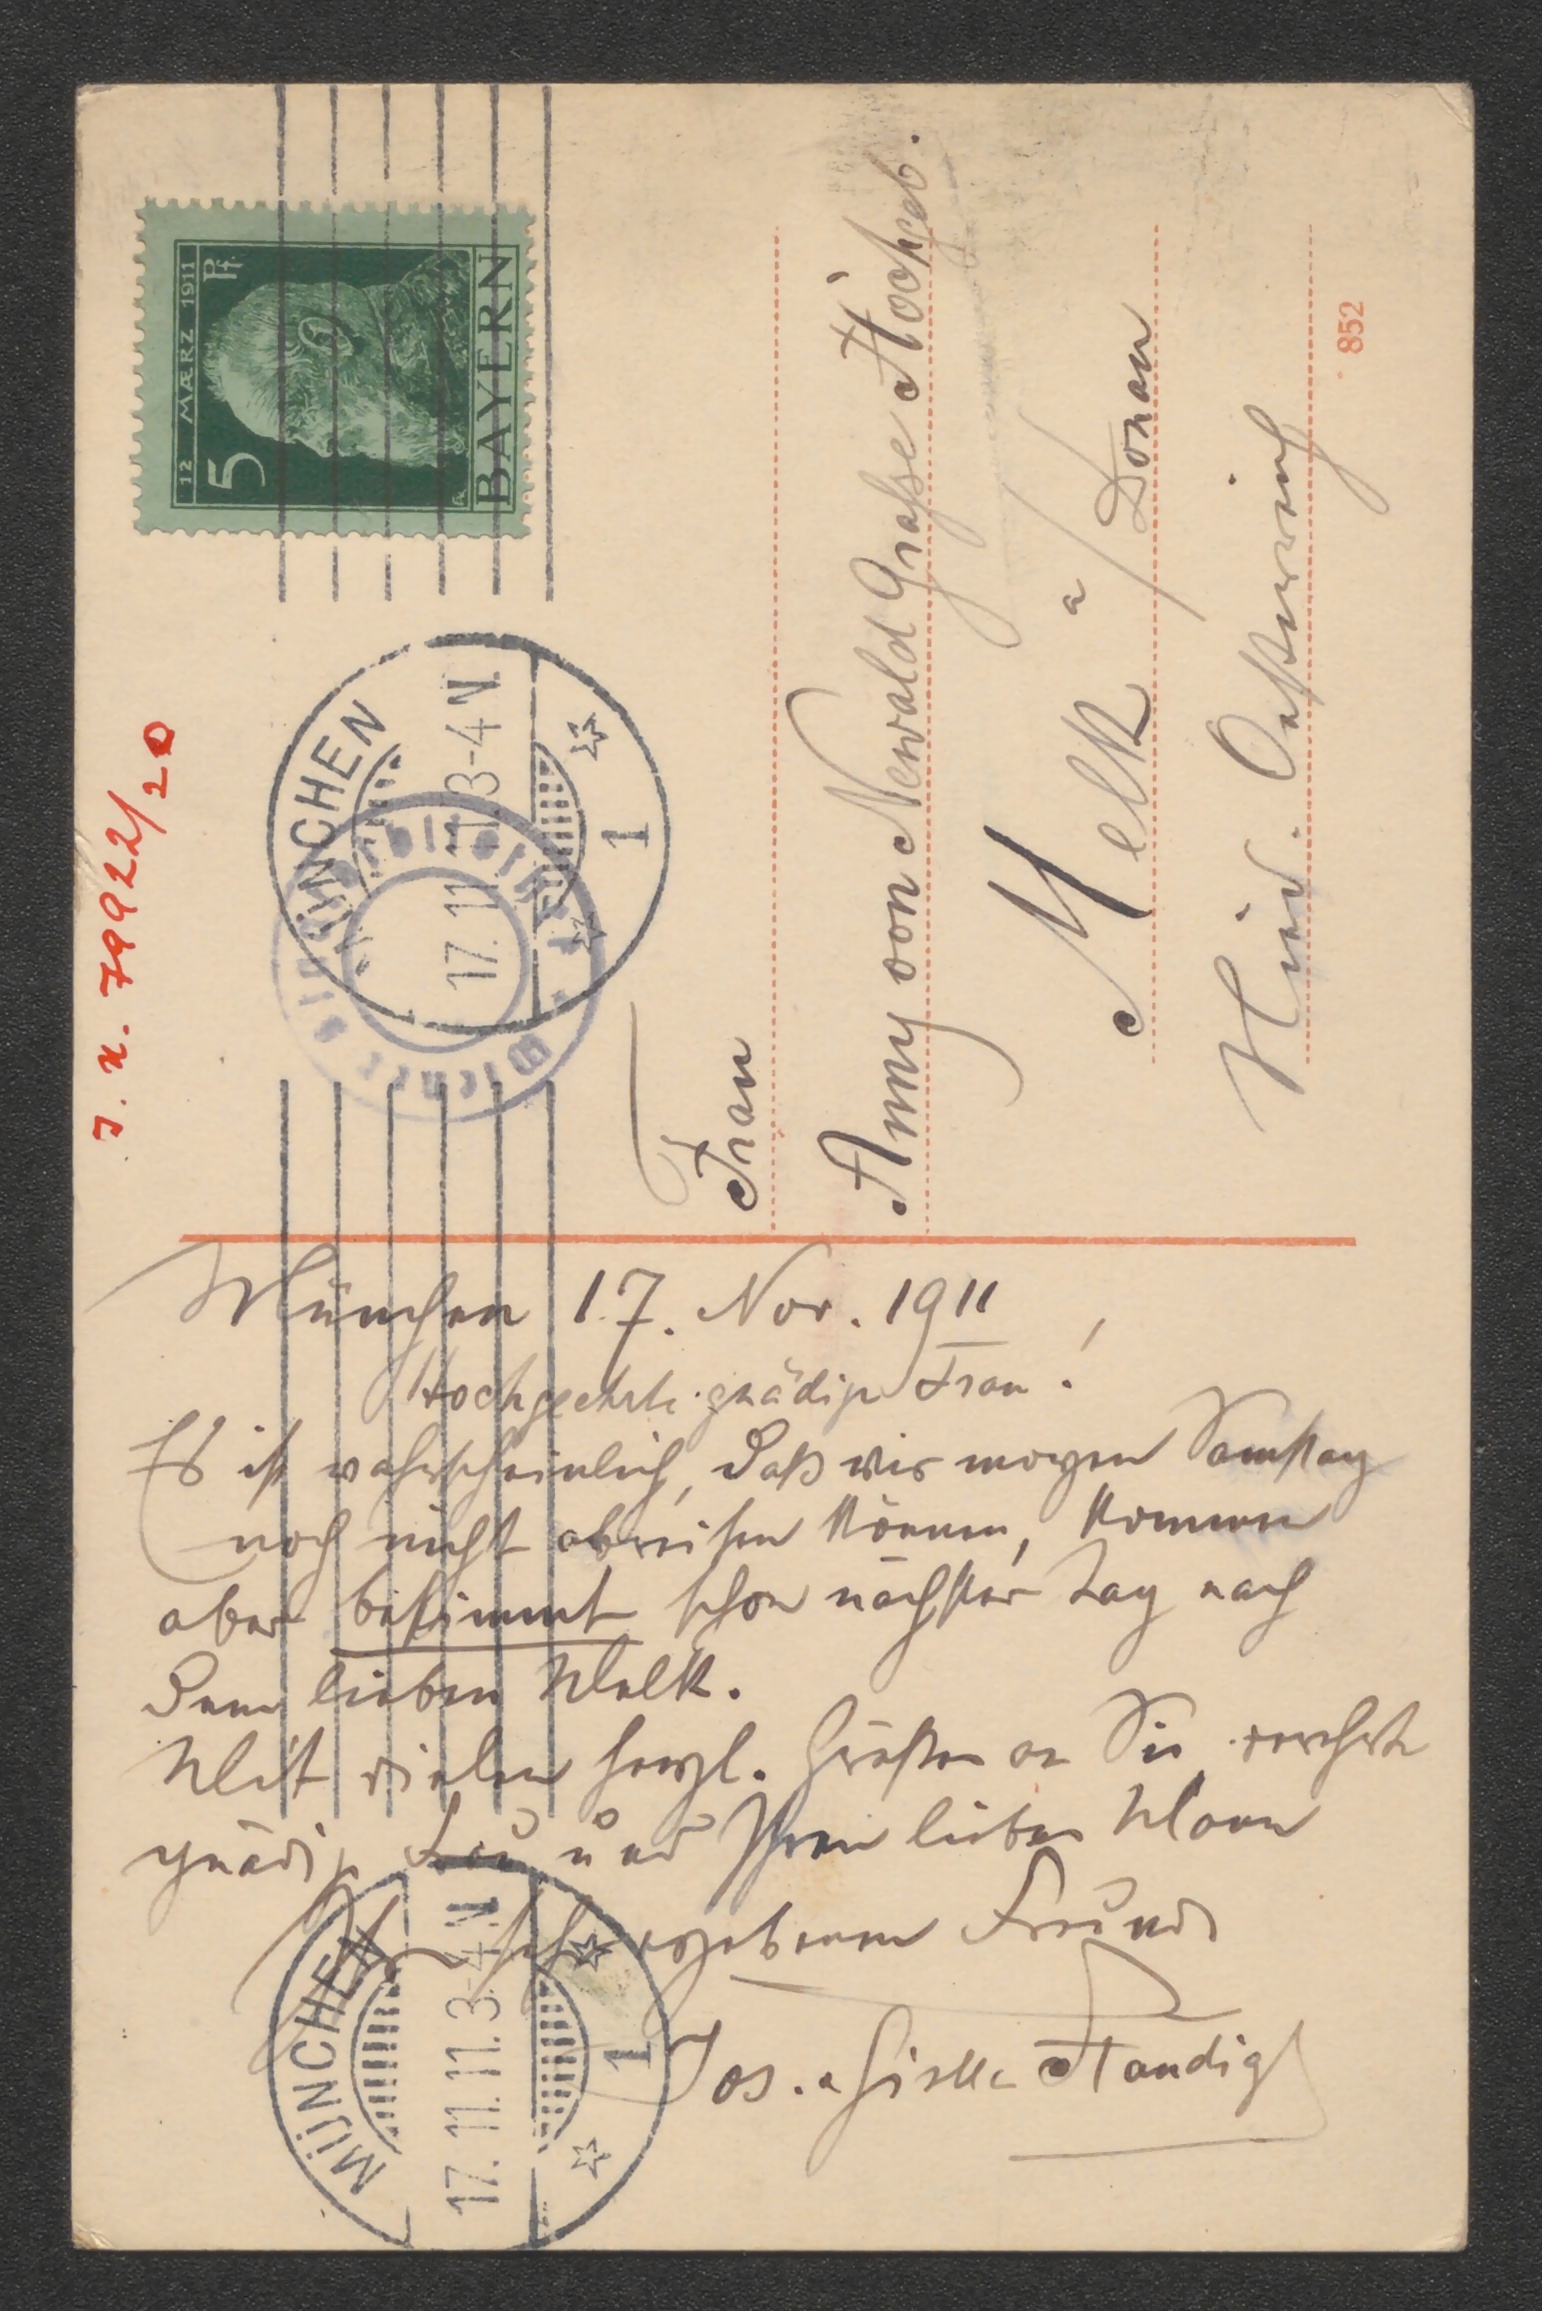 12 MÆRZ 1911
5 Pf.
BAYERN
MÜNCHEN
17.11.11.3-4 N.
1
Wiener Stadtbibliothek
J. N. 79922/20
Frau
Anny von Newald Grasse Hochgeb.
Melk a/Donau
Nied. Oesterreich
852
München 17. Nov. 1911
Hochgeehrte gnädige Frau!
Es ist wahrscheinlich, daß wir morgen Samstag
noch nicht abreisen können, kommen
aber bestimmt schon nächster Tag nach
dem lieben Melk.
Mit vielen herzl. Grüßen an Sie verehrte
gnädige Frau und Ihren lieben Mann
Ihre sehr ergebenen Freunde
Jos. u. Gisella Standigl
MÜNCHEN
17.11.11.3-4 N
1